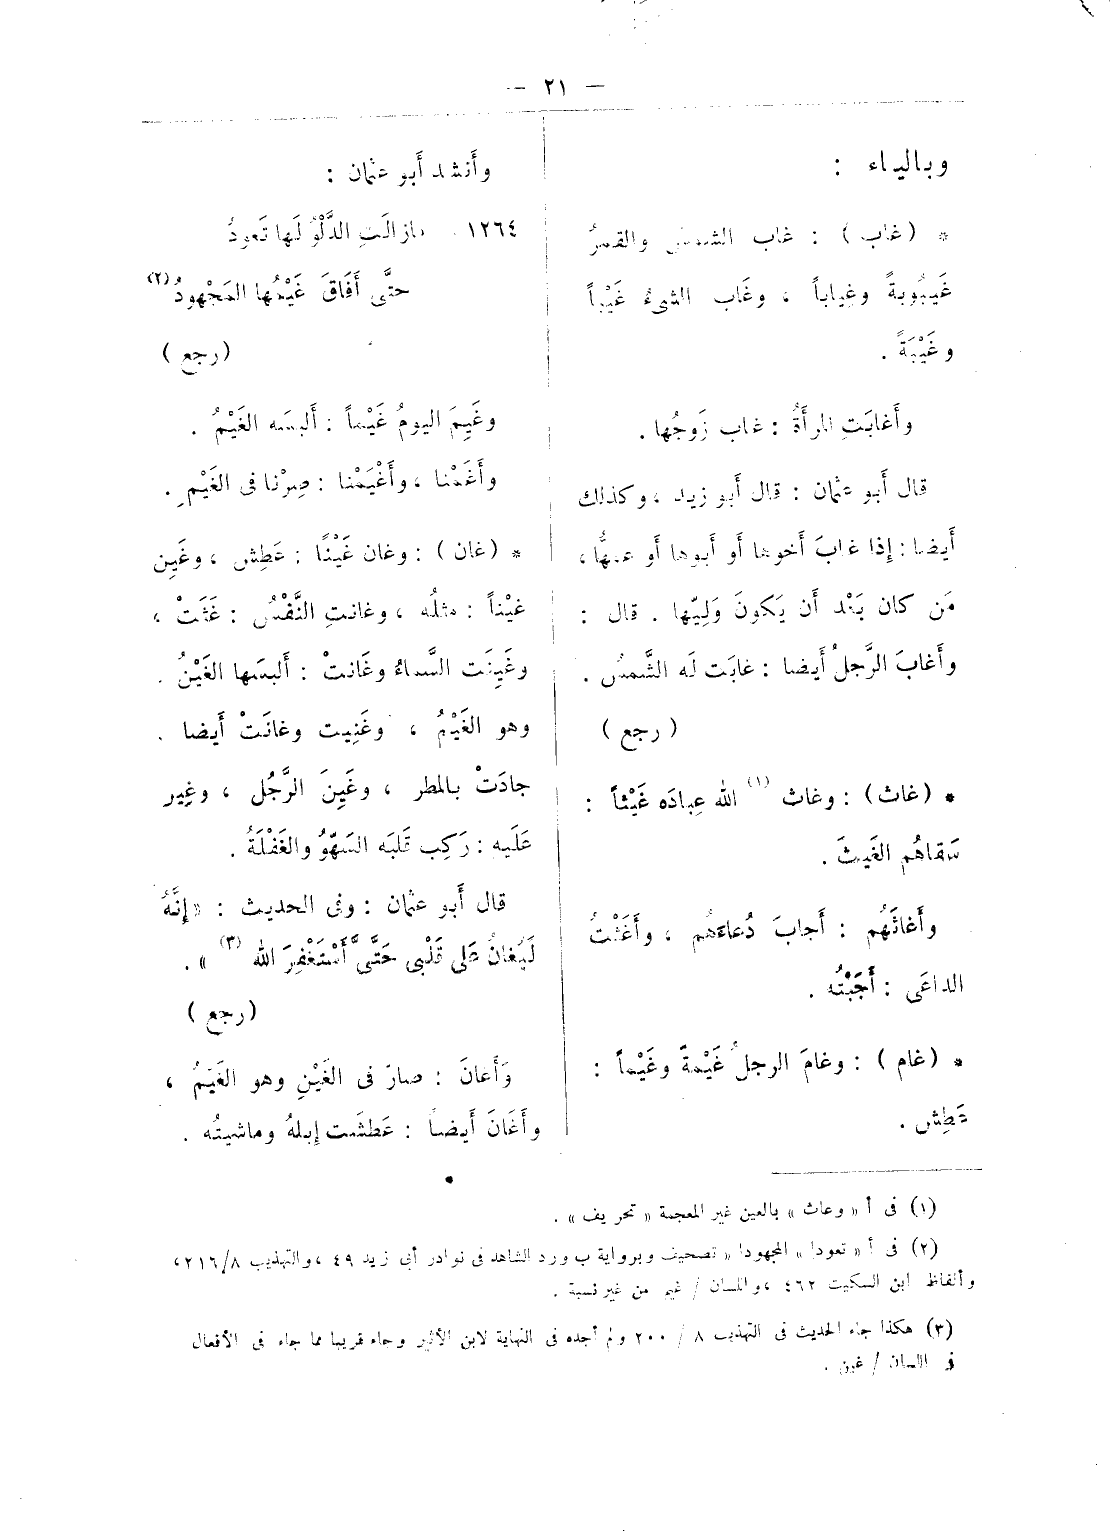 — ٢١ —
وبالياء :
* (غاب) : غاب الشمس والقمرُ
غَيبُوبةً وغياباً ، وغَاب الشىءُ غَيْباً
وغَيْبَةً .
وأَغابَتِ المرأَةُ : غاب زَوجُها .
قال أَبو عثمان : قال أَبو زيد ، وكذلك
أَيضا : إِذا غابَ أَخوها أَو أَبوها أَو عمها ،
مَن كان بَعْد أَن يَكونَ وَلِيّها . قال :
وأَغابَ الرَّجلُ أَيضا : غابَت لَه الشَّمسُ .
( رجع )
* (غاث) : وغاث (١) الله عِبادَه غَيْثاً :
سَقاهُم الغَيثَ .
وأَغاثَهُم : أَجابَ دُعاءَهُم ، وأَغَثْتُ
الداعَى : أَجَبْتُه .
* (غام ) : وغامَ الرجلُ غَيْمةً وغَيْماً :
عَطِش .
وأَنشد أَبو عثمان :
١٢٦٤ . مازالَتِ الدَّلْوُ لَها تَعودُ
حتَّى أَفَاقَ غَيْمُها المَجْهودُ (٢)
(رجع )
وغَيِمَ اليومُ غَيْماً : أَلبسَه الغَيْمُ .
وأَغَمْنا ، وأَغْيَمْنا : صِرْنا فى الغَيْمِ .
* (غان ) : وغان غَيْنًا : عَطِش ، وغَيِن
غيْناً : مثلُه ، وغانتِ النَّفْسُ : غَثَتْ ،
وغَيِنَت السَّماءُ وغَانتْ : أَلبسَها الغَيْنُ .
وهو الغَيْمُ ، وغَنِيت وغانَتْ أَيضا .
جادَتْ بالمطر ، وغَيِنَ الرَّجُل ، وغِير
عَلَيه : رَكِب قَلبَه السَهْوُ والغَفْلَةُ .
قال أَبو عثمان : وفى الحديث : « إِنَّهُ
لَيُغانُ عَلى قَلْبى حَتَّى أَسْتَغْفِرَ الله (٣) » .
(رجع )
وَأَغانَ : صارَ فى الغَيْنِ وهو الغَيْمُ ،
وأَغَانَ أَيضاً : عَطشَت إِبلهُ وماشيتُه .
(١) فى أ « وعاث » بالعين غير المعجمة « تحريف » .
(٢) فى أ « تعودا » المجهودا « تصحيف وبرواية ب ورد الشاهد فى نوادر أبى زيد ٤٩ ، والتهذيب ٢١٦/٨ ،
وألفاظ ابن السكيت ٤٦٢ ، واللسان / غيم من غير نسبة .
(٣) هكذا جاء الحديث فى التهذيب ٨ / ٢٠٠ ولم أجده فى النهاية لابن الأثير وجاء قريبا مما جاء فى الأفعال
فى اللسان / غين .